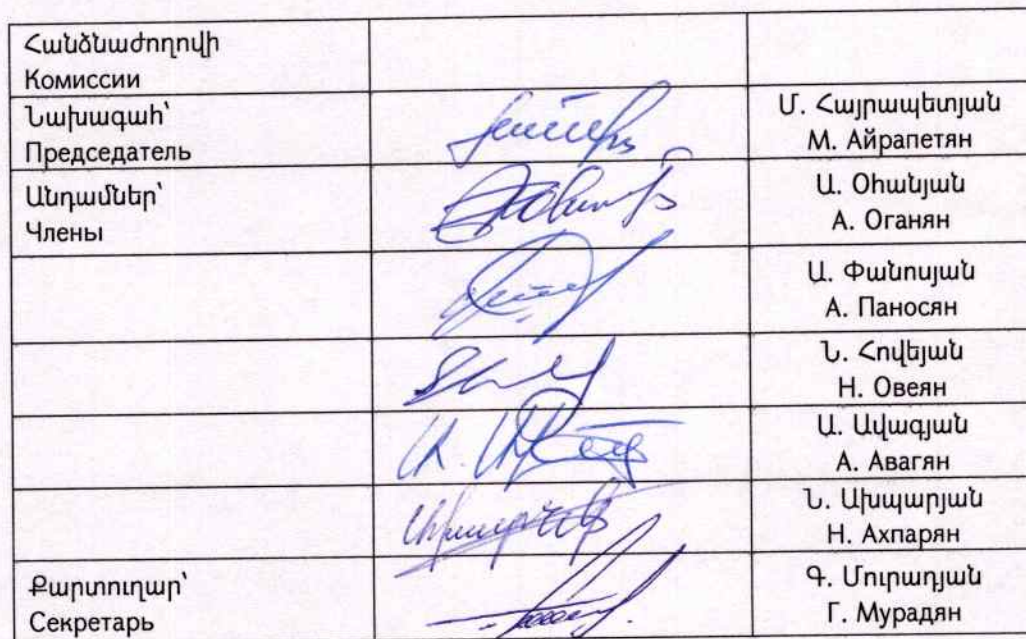 Հանձնաժողովի
Комиссии
Նախագահ՝
Председатель
Մ. Հայրապետյան
М. Айрапетян
Անդամներ՝
Члены
Ա. Օհանյան
А. Оганян
Ա. Փանոսյան
А. Паносян
Ն. Հովեյան
Н. Овеян
Ա. Ավագյան
А. Авагян
Ն. Ախպարյան
Н. Ахпарян
Քարտուղար՝
Секретарь
Գ. Մուրադյան
Г. Мурадян